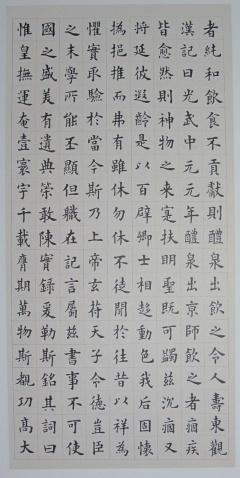 者純和飲食不貢獻則醴泉出飲之令人壽東觀
漢記曰光武中元元年醴泉出京師飲之者痼疾
皆愈然則神物之來寔扶明聖既可蠲茲沉痼又
將延彼遐齡是以百辟卿士相趨動色我后固懷
撝挹推而弗有雖休勿休不徒聞於往昔以祥為
懼實取驗於當今斯乃上帝玄符天子令德豈臣
之末學所能丕顯但職在記言屬茲書事不可使
國之盛美有遺典策敢陳實錄爰勒斯銘其詞曰
惟皇撫運奄壹寰宇千載膺期萬物斯覩功高大